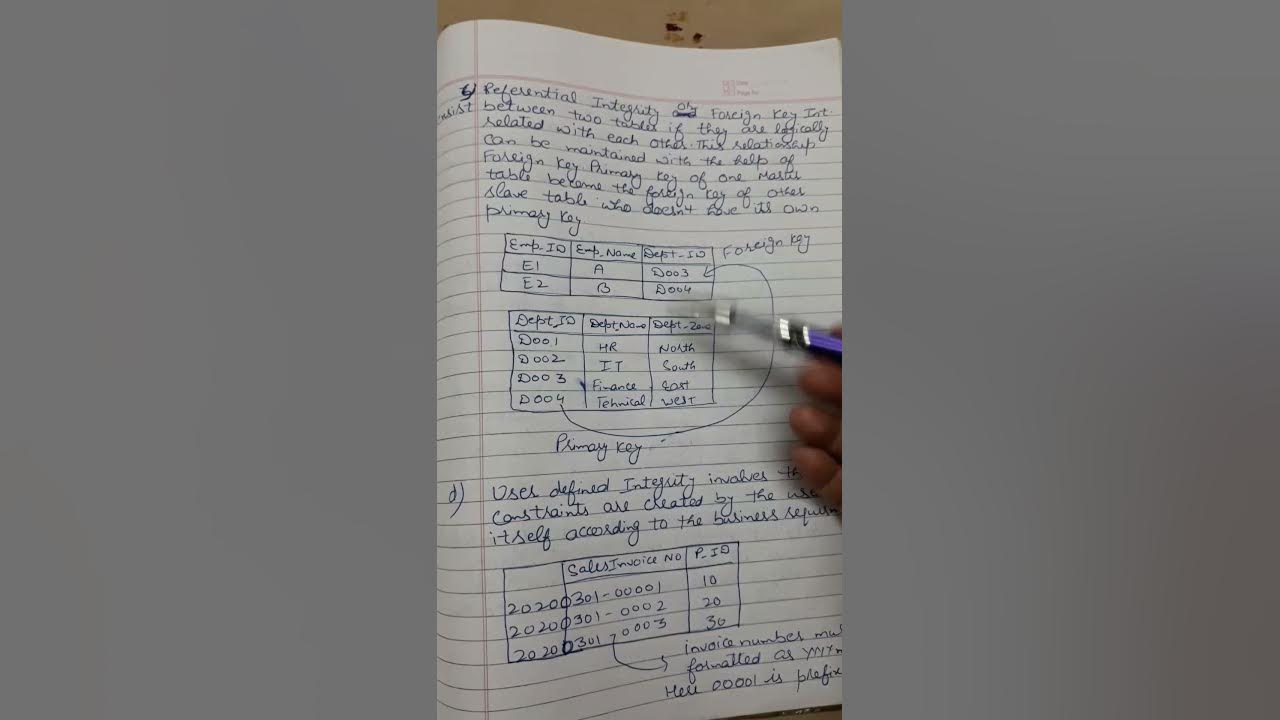 Date
Page No
or
c) Referential Integrity and Foreign Key Int.
between two tables if they are logically
related with each other. This relationship
can be maintained with the help of
Foreign Key Primary Key of one Master
table become the foreign key of other
slave table who doesn't have its own
primary key
Emp_ID Emp_Name Dept-ID Foreign key
E1 A D003
E2 B D004
Dept_ID Dept_Name Dept-Zone
D001 HR North
D002 IT South
D003 Finance East
D004 Tehnical West
Primary Key
d) User defined Integrity involves
constraints are created by the use
itself according to the business
Sales Invoice No P_ID
20200301-00001 10
20200301-0002 20
20200301-0003 30
invoice number
formatted as
Here 00001 is